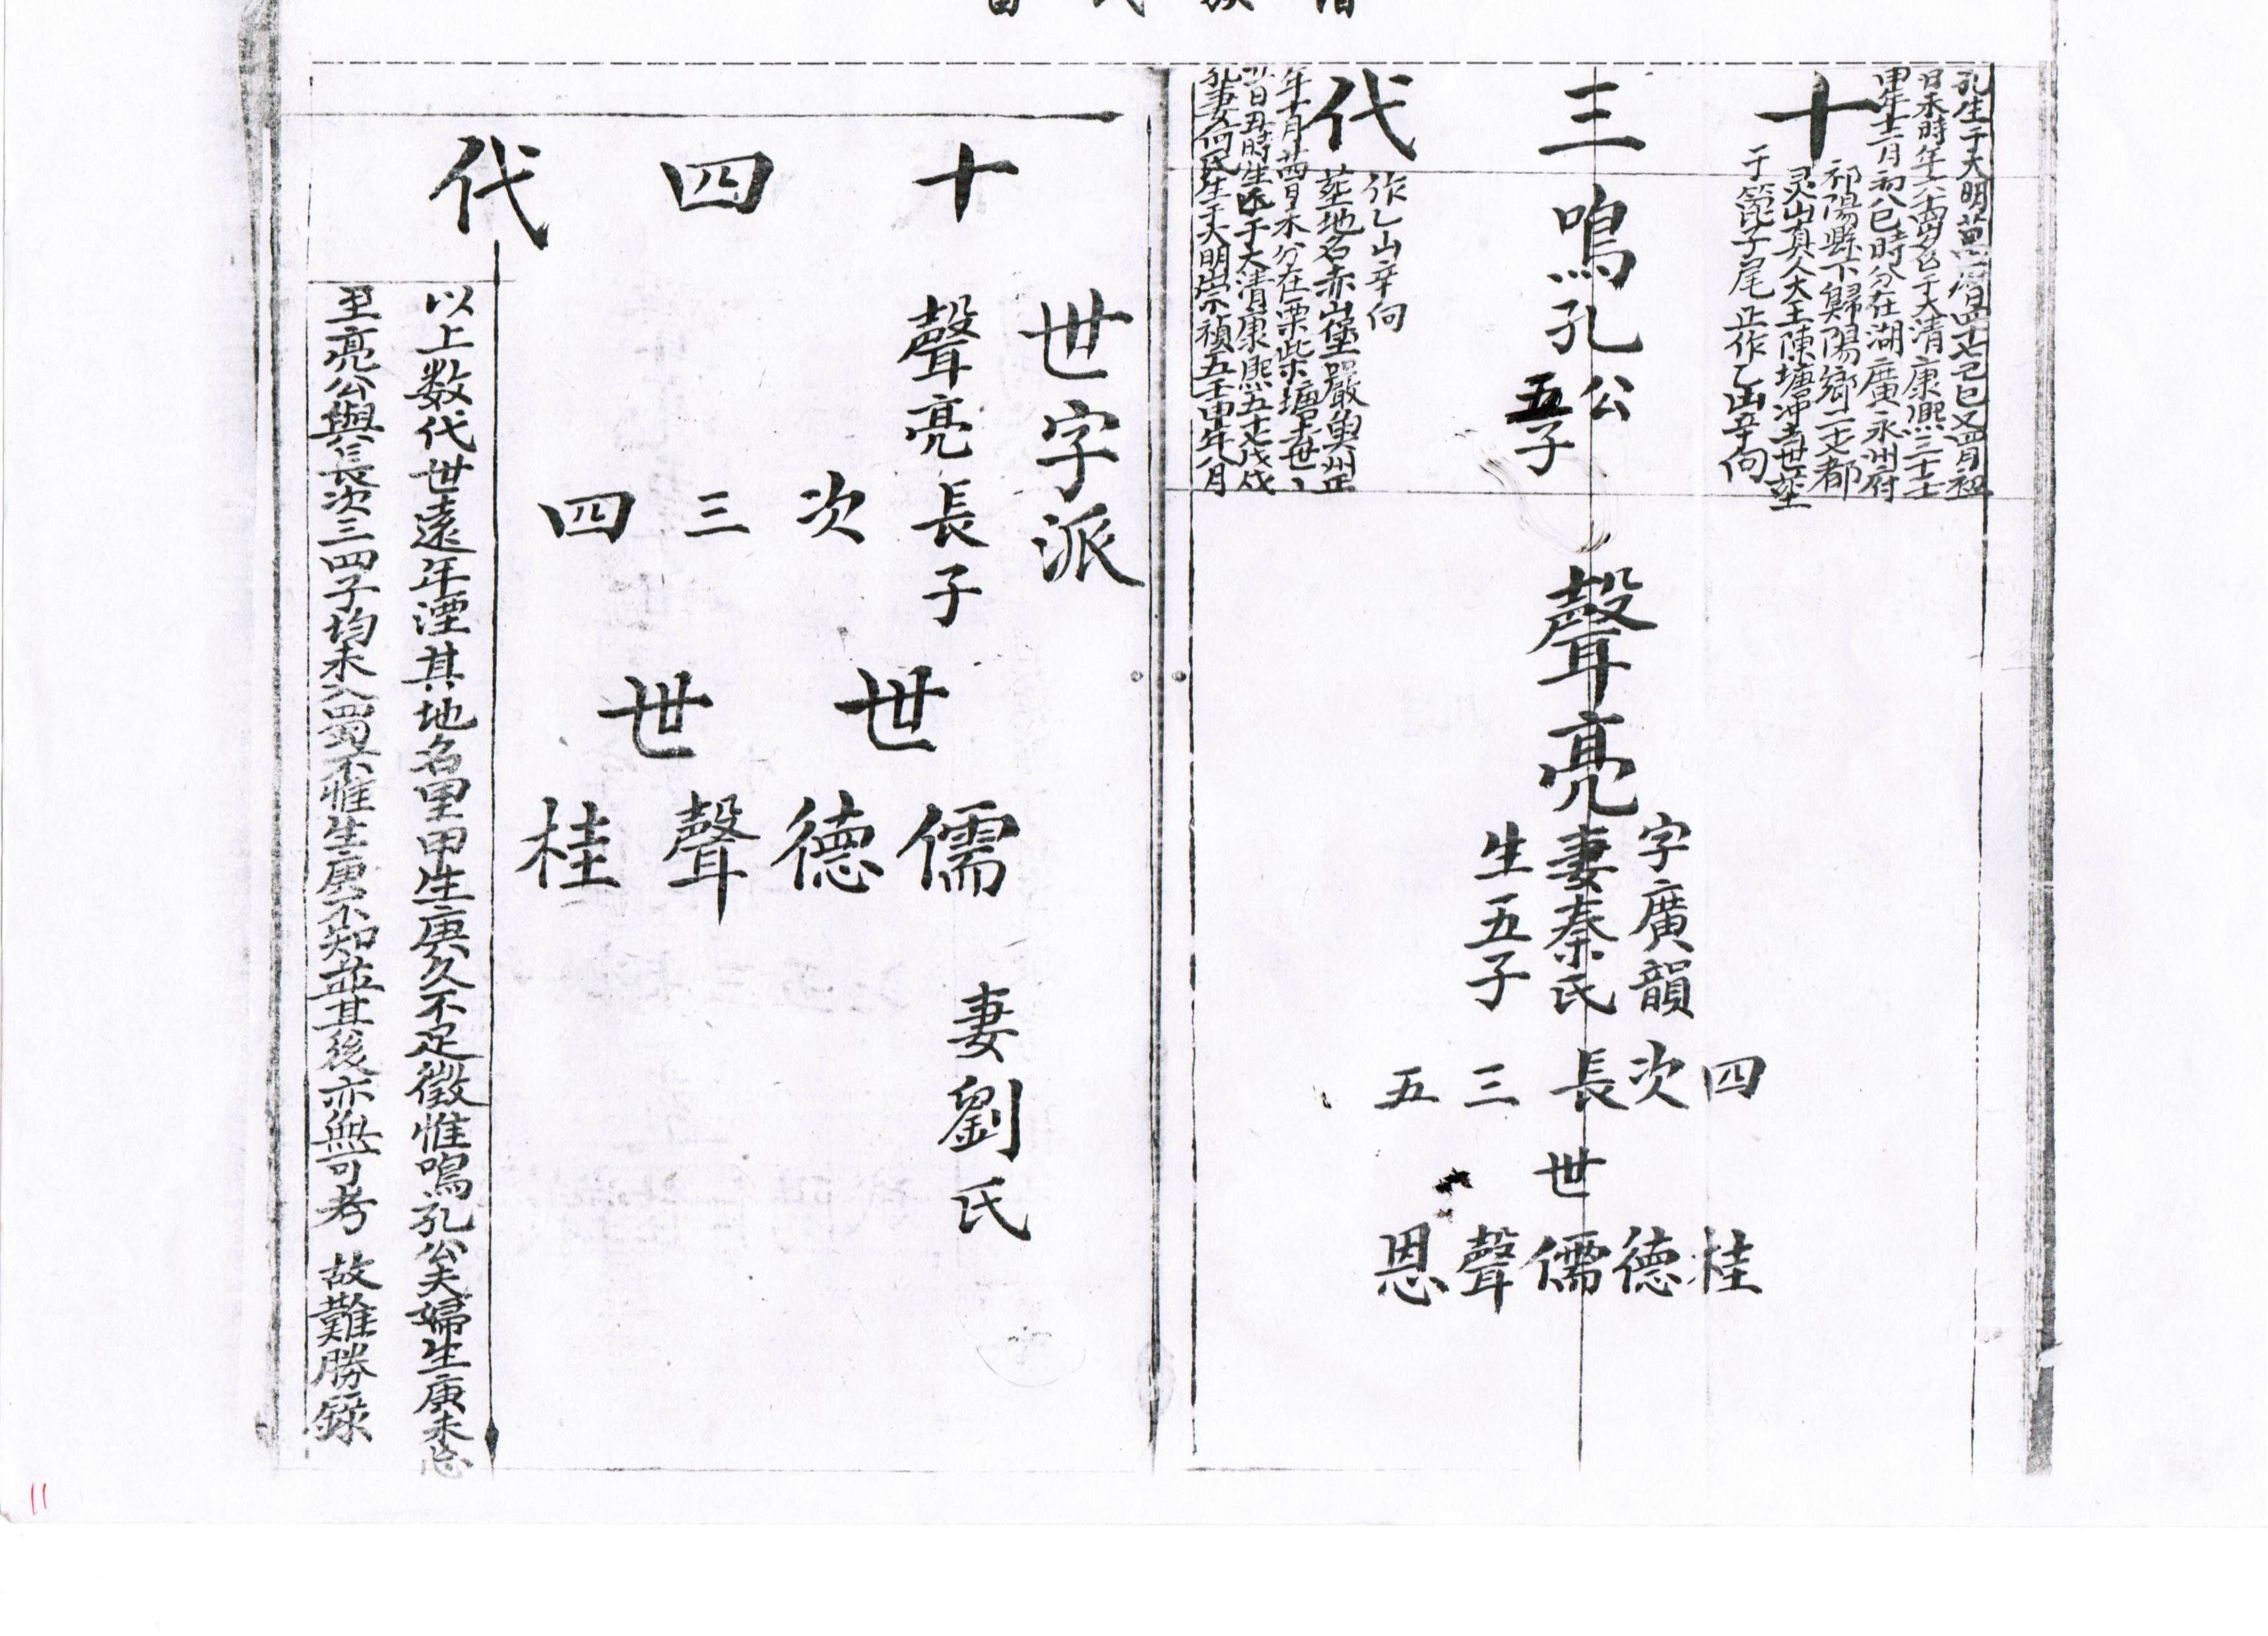 氏族
十三代
孔生于大明萬曆四十七己巳又四月初
日未時年六十四岁亡于大清康熙三十七
甲年十二月初八巳時分在湖廣永州府
祁陽縣下歸陽鄉二十七都
灵山真人大王陳塘冲去世塟
于箆子尾正作乙山辛向
鳴孔公
五子
作乙山辛向
塟地名赤山堡嚴魚州正
年十月廿四日未分在栗柴塘去世
廿日丑時生殁于大清康熙五十七戊戌
孔妻何氏生于大明崇禎五壬申年八月
聲亮
字廣韻
妻秦氏
生五子
四 次 長 三 五
世
桂 德 儒 聲 恩
十四代
世字派
聲亮長子
次 三 四
世 世
儒 德 聲 桂
妻劉氏
以上数代世遠年湮其地名里甲生庚久不足徵惟鳴孔公夫婦生庚未忘
至亮公與長次三四子均未入蜀不惟生庚不知並其後亦無可考 故難勝錄
11